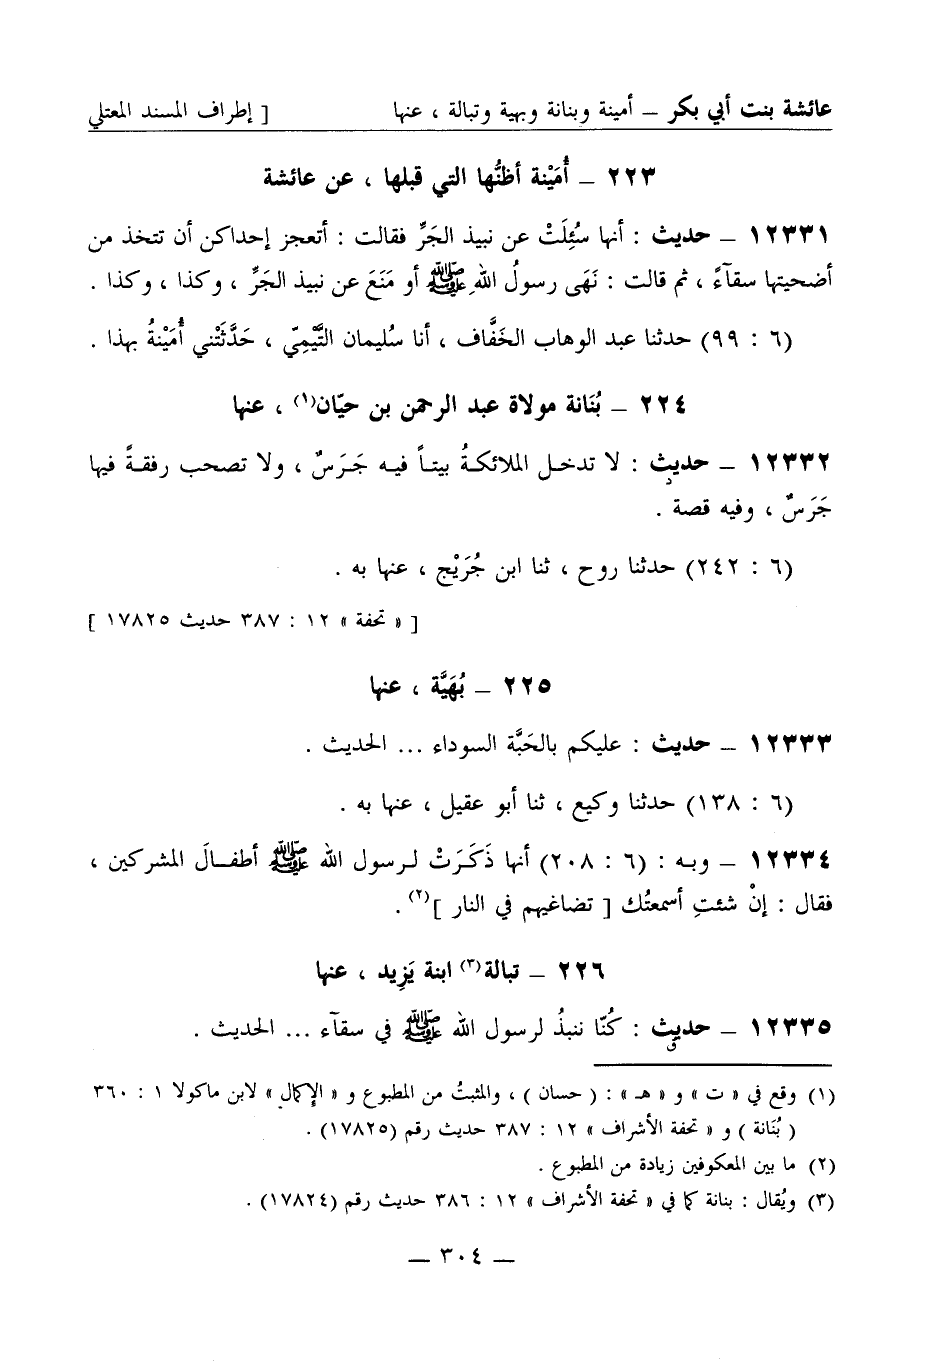 عائشة بنت أبي بكر – أمينة وبنانة وبهية وتبالة ، عنها [ إطراف المسند المعتلي
٢٢٣ – أُمَيْنة أظنُّها التي قبلها ، عن عائشة
١٢٣٣١ – حديث : أنها سُئِلَتْ عن نبيذ الجَرِّ فقالت : أتعجز إحداكن أن تتخذ من
أضحيتها سقآءً ، ثم قالت : نَهَى رسولُ اللهِ ﷺ أو مَنَعَ عن نبيذ الجَرِّ ، وكذا ، وكذا .
(٦ : ٩٩) حدثنا عبد الوهاب الخَفَّاف ، أنا سُليمان التَّيْمِيّ ، حَدَّثَتْني أُمَيْنةُ بهذا .
٢٢٤ – بُنَانة مولاة عبد الرحمن بن حيّان(١) ، عنها
١٢٣٣٢ – حديث : لا تدخل الملائكةُ بيتاً فيه جَرَسٌ ، ولا تصحب رفقةً فيها
د
جَرَسٌ ، وفيه قصة .
(٦ : ٢٤٢) حدثنا روح ، ثنا ابن جُرَيْج ، عنها به .
[ « تحفة » ١٢ : ٣٨٧ حديث ١٧٨٢٥ ]
٢٢٥ – بُهَيَّة ، عنها
١٢٣٣٣ – حديث : عليكم بالحَبَّة السوداء ... الحديث .
(٦ : ١٣٨) حدثنا وكيع ، ثنا أبو عقيل ، عنها به .
١٢٣٣٤ – وبه : (٦ : ٢٠٨) أنها ذَكَرَتْ لرسول الله ﷺ أطفالَ المشركين ،
فقال : إنْ شئتِ أسمعتُك [ تضاغيهم في النار ](٢) .
٢٢٦ – تبالة(٣) ابنة يَزِيد ، عنها
١٢٣٣٥ – حديث : كُنّا ننبذُ لرسول الله ﷺ في سقآء ... الحديث .
ق
(١) وقع في « ت » و « هـ » : ( حسان ) ، والمثبتُ من المطبوع و « الإكمال » لابن ماكولا ١ : ٣٦٠
( بُنَانة ) و « تحفة الأشراف » ١٢ : ٣٨٧ حديث رقم (١٧٨٢٥) .
(٢) ما بين المعكوفين زيادة من المطبوع .
(٣) ويُقال : بنانة كما في « تحفة الأشراف » ١٢ : ٣٨٦ حديث رقم (١٧٨٢٤) .
— ٣٠٤ —